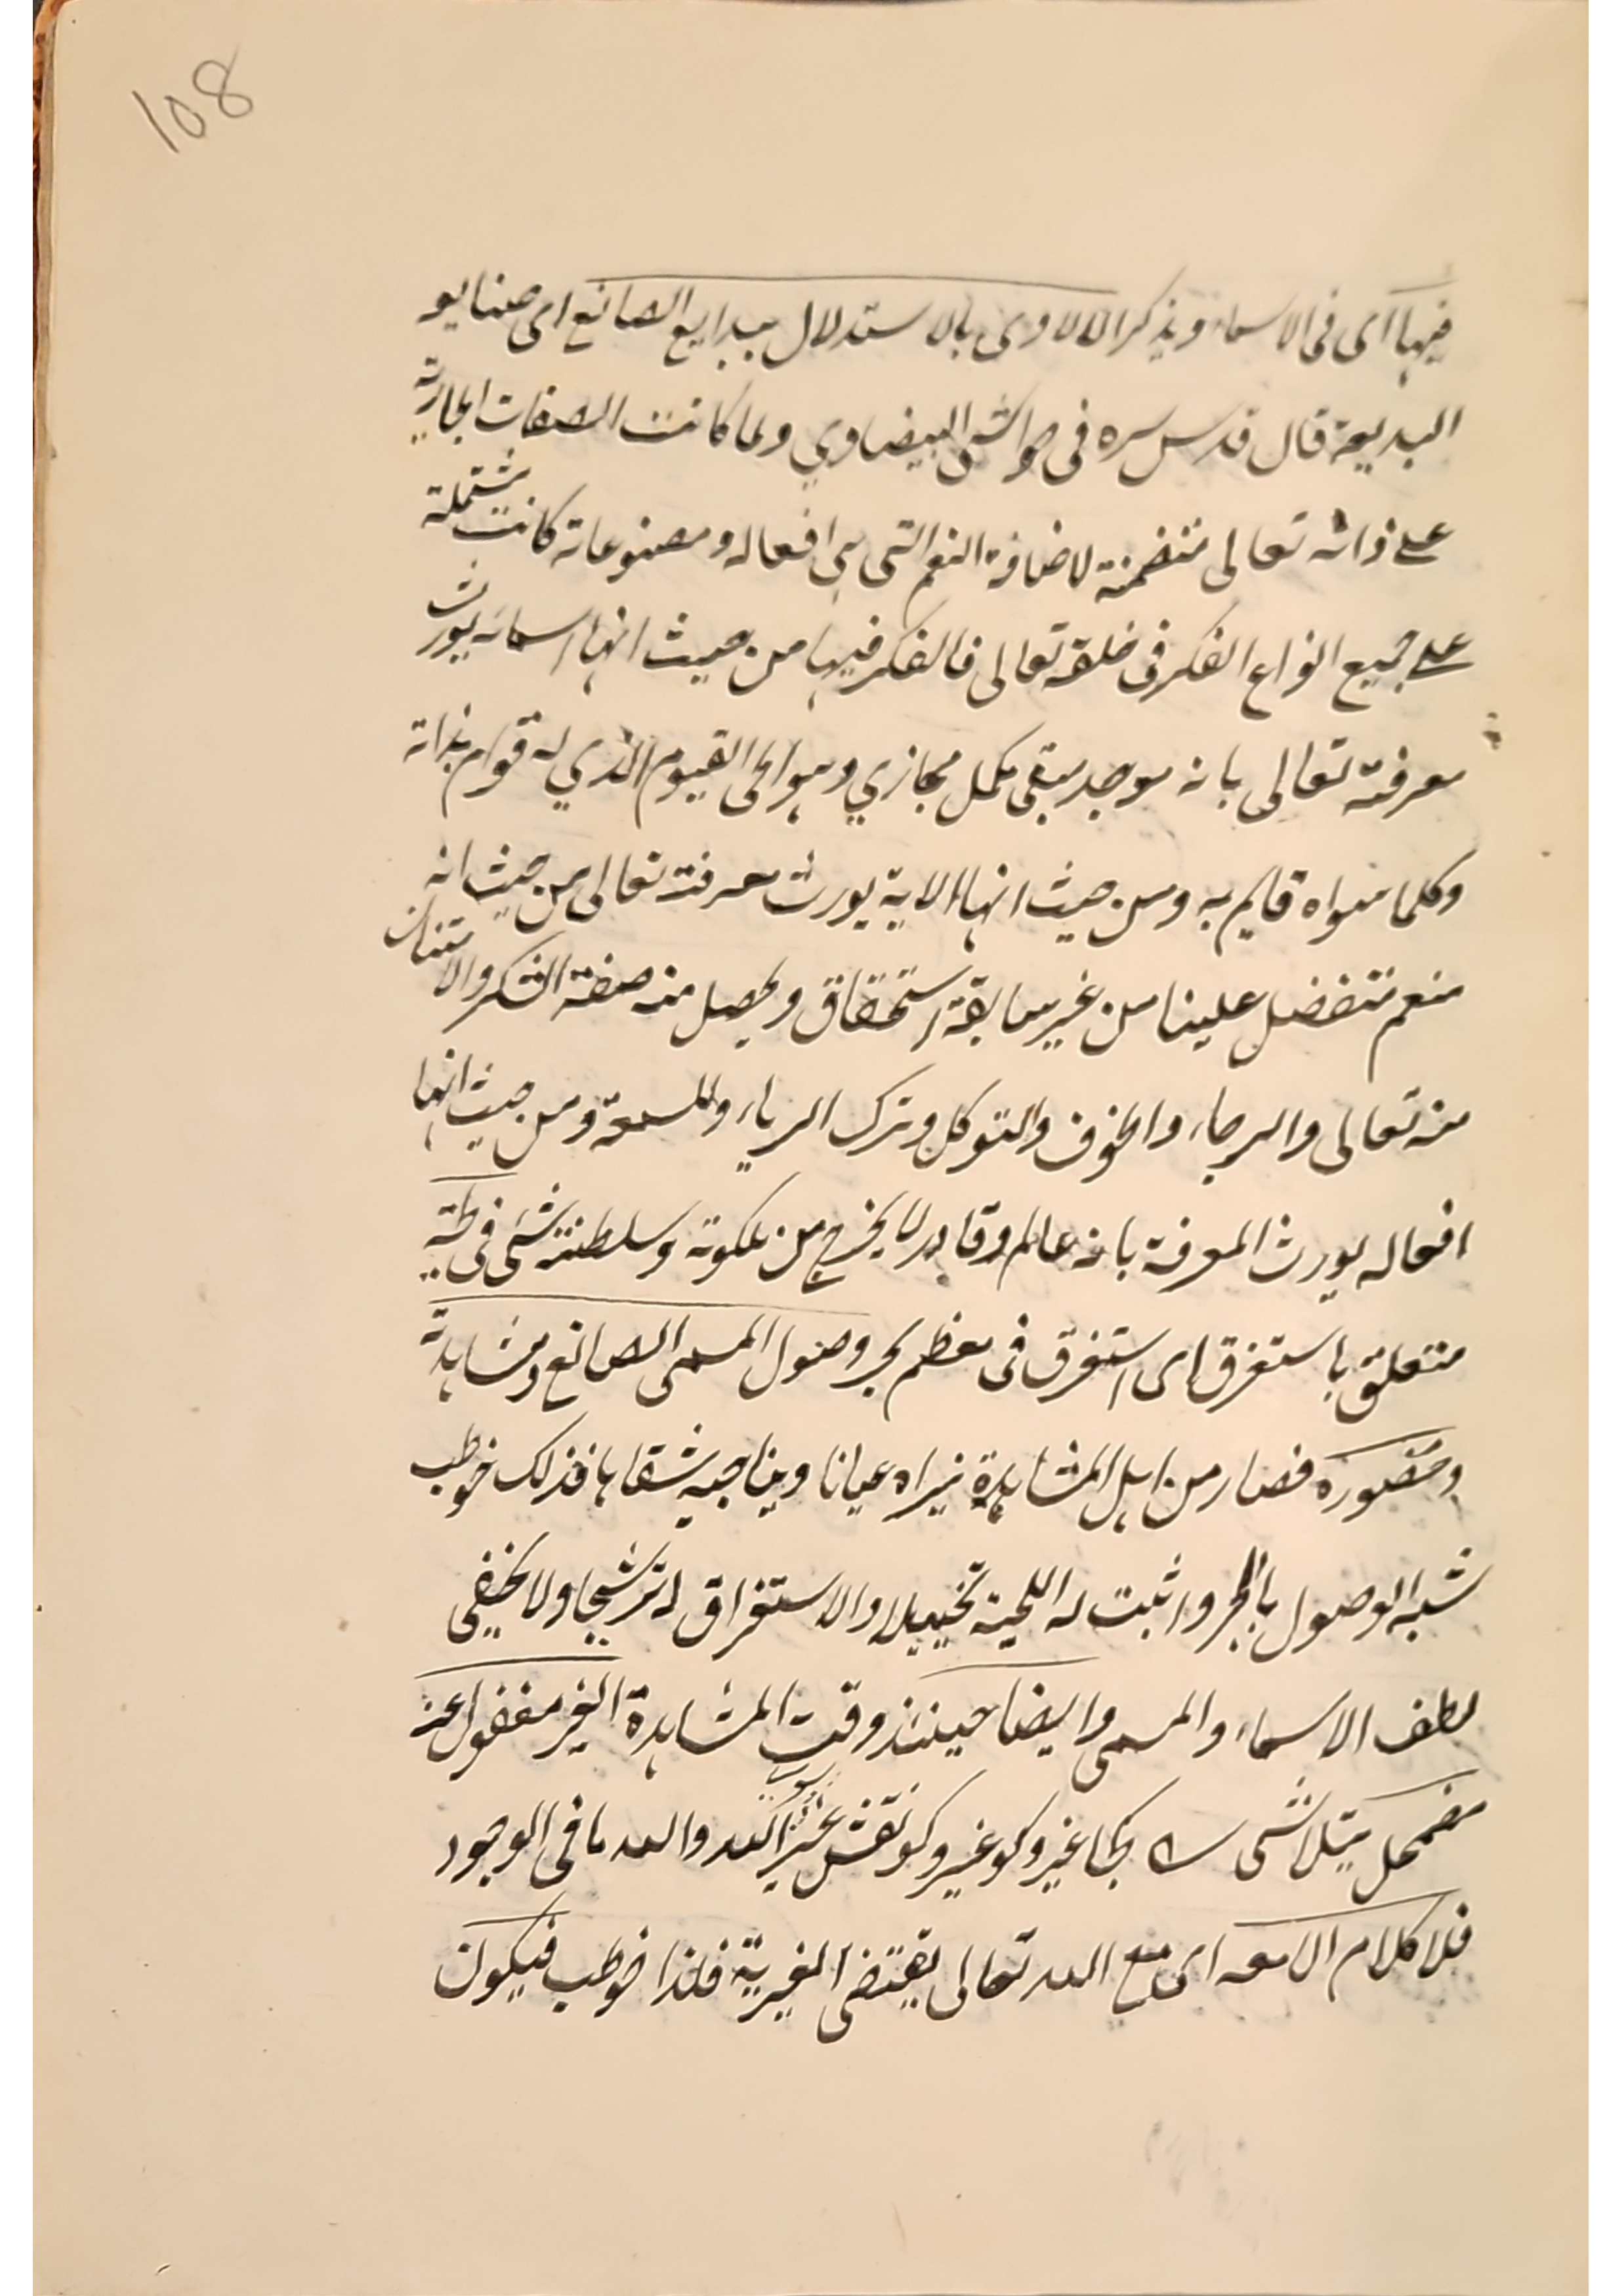 108
فيها اى فى الاسماء ويذكر الالاوى بالاستدلال ببدايع الصانع اى صنايو
البديعة قال قدس سره فى حواشى البيضاوي ولما كانت الصفات الجارية
على ذاته تعالى متضمنة لاضافة النعم التى هى افعاله ومصنوعاته كانت مشتملة
على جميع انواع الفكر فى خلقه تعالى فالفكر فيها من حيث انها اسمائه يورث
معرفته تعالى بانه موجد مبقى مكمل مجازي وهو الحى القيوم الذي له قوام بذاته
وكلما سواه قايم به ومن حيث انها الاية يورث معرفته تعالى من حيث انه
منعم متفضل علينا من غير سابقة استحقاق ويحصل منه صفة الشكر والامتنان
منه تعالى والرجاء والخوف والتوكل وترك الرياء والسمعة ومن حيث انها
افعاله يورث المعرفة بانه عالم وقادر لا يخرج من ملكوته وسلطنته شئى فى لجة
متعلق باستغرق اى استغرق فى معظم بحر وصول المسمى الصانع ومشاهدة
وحضوره فصار من اهل المشاهدة فيراه عيانا ويناجيه شفاها فذلك خوطب
شبه الوصول بالبحر واثبت له اللجية تخييلا والاستغراق له ترشيحا ولا يخفى
لطف الاسماء والمسمى وايضا حينئذ وقت المشاهدة الغير مغفول عنه
مضمحل يتلاشى كجا غير وكو غير وكو نقش غير سوى الله والله ما فى الوجود
فلا كلام الا معه اى مع الله تعالى يقتضى الغيرية فلذا خوطب فيكون